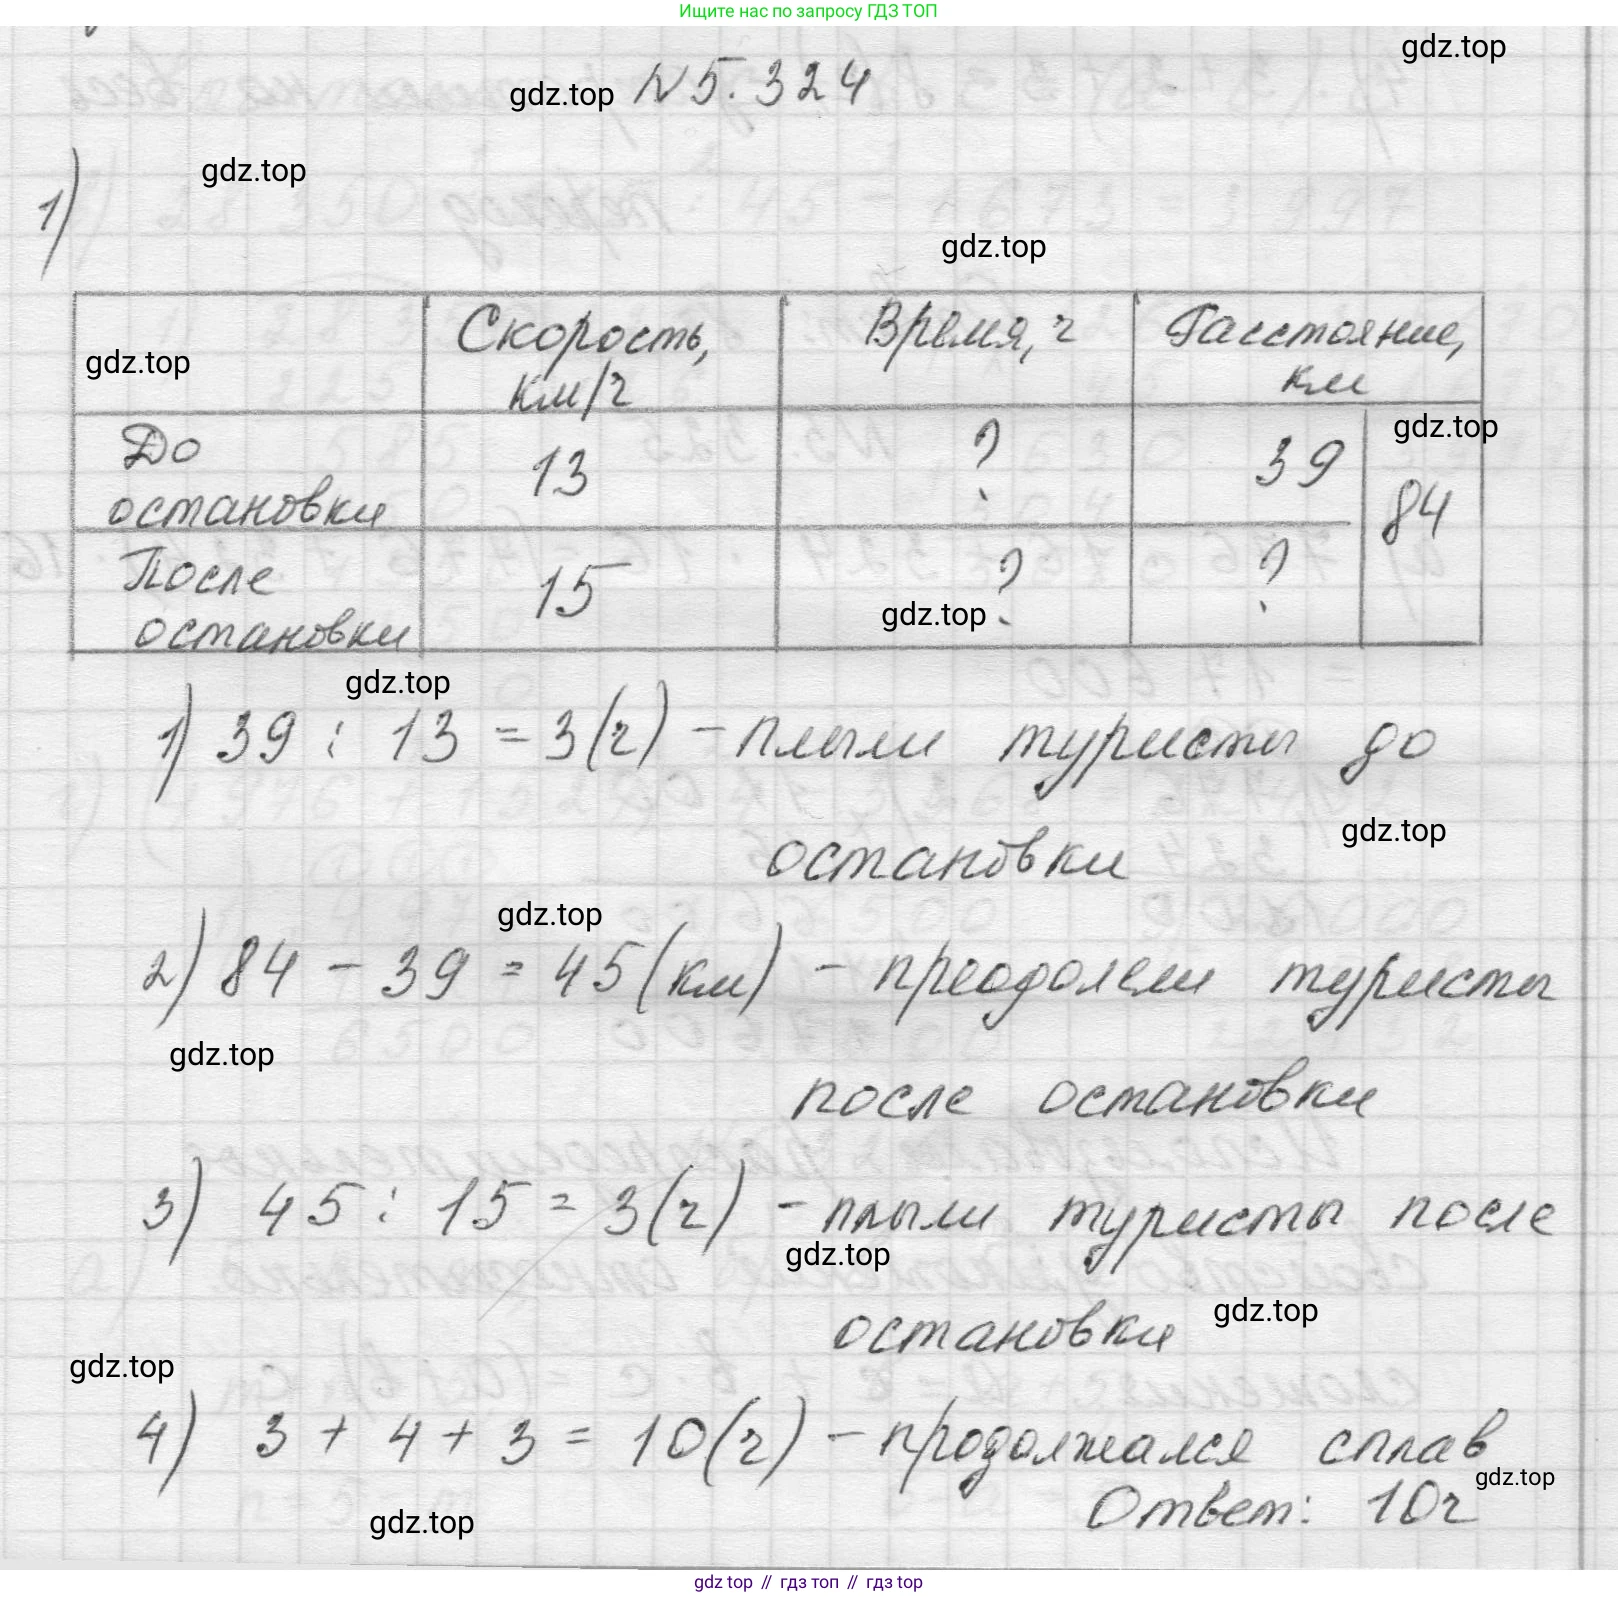 Ищите нас по запросу ГДЗ ТОП
gdz.top
gdz.top №5.324
gdz.top
1)
gdz.top
gdz.top
Скорость, км/ч
Время, ч
Расстояние, км
До остановки
13
?
39
84
gdz.top
После остановки
15
?
?
gdz.top
gdz.top
1) 39 : 13 = 3(ч) - плыли туристы до
остановки
gdz.top
gdz.top
2) 84 - 39 = 45(км) - преодолели туристы
gdz.top
после остановки
3) 45 : 15 = 3(ч) - плыли туристы после
gdz.top
остановки
gdz.top
gdz.top
4) 3 + 4 + 3 = 10(ч) - продолжался сплав
gdz.top
Ответ: 10ч
gdz.top
gdz top // гдз топ // гдз top